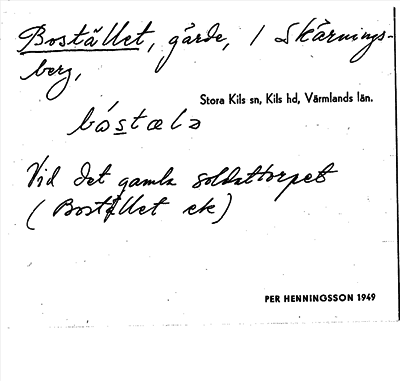 Bostället, gärde, / Skårnings-
berg,
Stora Kils sn, Kils hd, Värmlands län.
bó̀stælə
Vid det gamla soldattorpet
(Bostället ek)
PER HENNINGSSON 1949